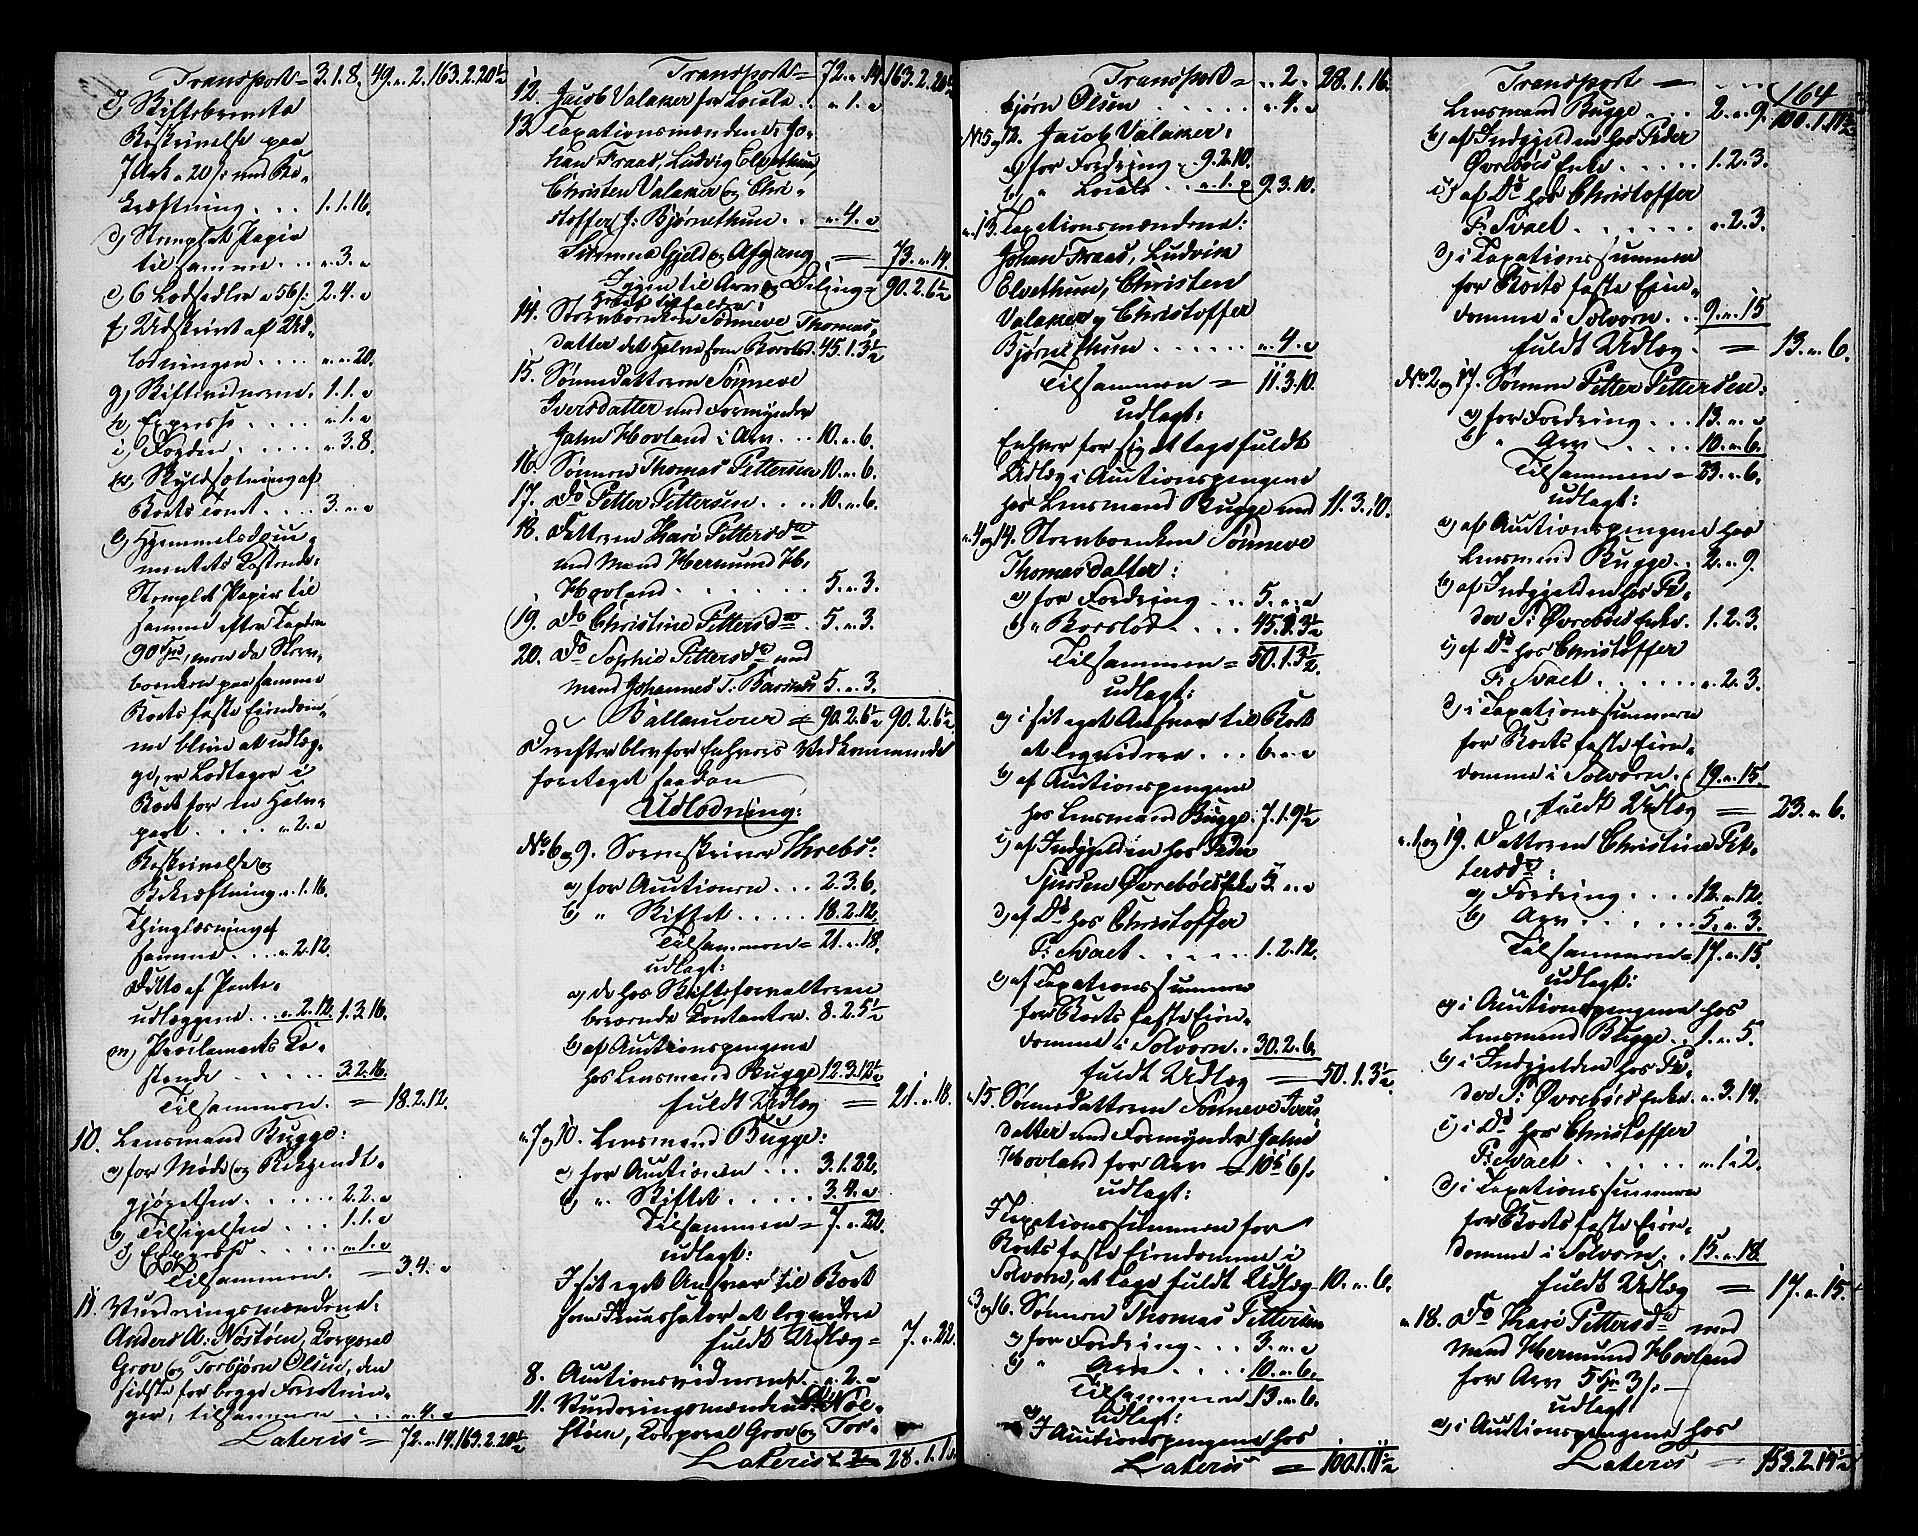 Transport = 3.1.8. 49. " 2. 163.2.20½
c) Skiftebrevets
Beskrivelse paa
7 Ark a 20 /: med Be-
kræftning . . . 1.1.16.
d) Stemplet Papir
til samme . . . " 3. "
e) 6 Lodsedler a 56 /: 2.4. "
f) Udskrivt af Ud-
lodningen . . . . " " 20.
g) Skiftevidnerne . 1.1. "
h) Expresse . . . . " 1. "
i) Foden . . . . . " 3.8.
k) Skyldsætning af
Boets Tomt . . . 3. " "
l) Hjemmelsdocu-
mentets Kostende:
Stemplet Papir til
samme efter Taxten
90 Spd, men da Stærv-
boenken paa samme
Boets faste Eiendom-
me bliver at udlæg-
ge, er Lodtager i
Boet for en Halv-
part . . . " 2. "
Beskrivelse og
Bekræftning " 1.16.
Thinglæsning af
samme . . . " 2.12.
Ditto af Pante-
udlæggene . . " 2.12. 1.3.16.
m) Proclamaets Ko-
stende . . . . . 3.2.16.
Tilsammen . = 18.2.12.
10. Lensmand Bugge:
a) for Møde og Bekjendt-
gjørelsen . . . . . 2.2. "
b) Tilsigelsen . . . 1.1. "
c) Expresse . . . . " 1. "
Tilsammen . = 3.4. "
11. Vurderingsmændene:
Anders A: Nøstøen, Corporal
Grov og Torbjørn Olsen, den
sidste for begge Forretnin-
ger, tilsammen . . . " 4. "
Lateris = 72. " 14. 163.2.20½
Transport = 72. " 14. 163.2.20½
12. Jacob Valaker for Locale . . " 1. "
13. Taxationsmændene Jo-
han Fraas, Ludvig Elvethun,
Christen Valaker og Chri-
stoffer J: Bjørnethun . . " 4. "
Summa Gjeld og Afgang = 73. " 14.
Igjen til Arv og Deling = 90.2.6½
hvoraf tilfalder:
14. Stervboenken Sønneve Thomas-
datter det Halve som Boeslod . 45.1.3½
15. Sønnedatteren Sønneve
Iversdatter med Formynder
John Hovland i Arv . . . 10. " 6.
16. Sønnen Thomas Pettersen 10. " 6.
17. Do Petter Pettersen . . . 10. " 6.
18. Datteren Kari Pettersda
med Mand Hermund H.
Hovland . . . . . . . 5. " 3.
19. Do Christine Pettersda . . 5. " 3.
20. Do Sophie Pettersda med
Mand Johannes T: Barsnes 5. " 3.
Ballancerer = 90.2.6½ 90.2.6½
Derefter blev for Enhvers Vedkommende
foretaget saadan
Udlodning:
No 6 og 9. Sorenskriver Krebs:
a) for Auctionen . . . 2.3.6.
b) " Skiftet . . . . . 18.2.12.
Tilsammen = 21. " 18.
udlagt:
a) de hos Skifteforvalteren
beroende Contanter . 8.2.5½
b) af Auctionspengene
hos Lensmand Bugge 12.3.12½
fuldt Udlæg = 21. " 18.
" 7 og 10. Lensmand Bugge:
a) for Auctionen . . . 3.1.22.
b) " Skiftet . . . . . 3.4. "
Tilsammen = 7. " 22.
udlagt:
I sit eget Ansvar til Boet
som Incassator at leqvidere
fuldt Udlæg = 7. " 22.
8. Auctionsvidnerne . . " 2. "
11. Vurderingsmændene A: Nø-
støen, Corporal Grov og Tor-
Lateris " 2. " 28.1.16.
Transport = " 2. " 28.1.16.
bjørn Olsen . . . . . . " 4. "
No 5 og 12. Jacob Valaker:
a) for Fordring . 9.2.10.
b) " Locale . . . " 1. " 9.3.10.
" 13. Taxationsmændene:
Johan Fraas, Ludvik
Elvethun, Christen
Valaker og Christoffer
Bjørnethun . . . . . . " 4. "
Tilsammen = 11.3.10.
udlagt:
Enhver for sig at tage fuldt
Udlæg i Auctionspengene
hos Lensmand Bugge med 11.3.10.
" 4 og 14. Stervboenken Sønneve
Thomasdatter:
a) for Fordring . . . 5. " "
b) " Boeslod . . . . 45.1.3½
Tilsammen = 50.1.3½
udlagt:
a) i sit eget Ansvar til Boet
at leqvidere . . . 6. " "
b) af Auctionspengene
hos Lensmand Bugge . 7.1.9½
c) af Indgjelden hos Peder
Sjursen Øvrebøes Enke 5. " "
d) af Do hos Christoffer
P: Svaet . . . . . . 1.2.12.
e) af Taxationssummen
for Boets faste Eien-
domme i Solvorn . . 30.2.6.
fuldt Udlæg = 50.1.3½
" 15. Sønnedatteren Sønneve Ivers-
datter med Formynder John
Hovland for Arv = 10 s 6 /:
udlagt:
I Taxationssummen for
Boets faste Eiendomme i
Solvorn, at tage fuldt Udlæg 10. " 6.
" 3 og 16. Sønnen Thomas Pettersen
a) for Fordring . . . 3. " "
b) " Arv . . . . . 10. " 6.
Tilsammen 13. " 6.
Udlagt:
a) I Auctionspengene hos
Lateris = 100.1.11½
164
Transport = . . . 100.1.11½
Lensmand Bugge . . . 2. " 9.
b) af Indgjelden hos Peder
Øvrebøes Enke . . . . 1.2.3.
c) af Do hos Christoffer
P: Svaet . . . . . . " 2.3.
d) i Taxationssummen
for Boets faste Eien-
domme i Solvorn . . 9. " 15
fuldt Udlæg . = 13. " 6.
No 2 og 17. Sønnen Petter Pettersen:
a) for Fordring . . . 13. " "
b) " Arv . . . . . 10. " 6.
Tilsammen = 23. " 6.
udlagt:
a) af Auctionspengene hos
Lensmand Bugge . . 2. " 9.
b) af Indgjelden hos Pe-
der S: Øvrebøes Enke . 1.2.3.
c) af Do hos Christoffer
P: Svaet . . . . . . " 2.3.
d) i Taxationssummen
for Boets faste Eien-
domme i Solvorn . . 19. " 15.
fuldt Udlæg = 23. " 6.
" 1 og 19. Datteren Christine Pet-
tersda:
a) Fordring . . . . 12. " 12.
b) Arv . . . . . . 5. " 3.
Tilsammen = 17. " 15.
udlagt:
a) i Auctionspengene hos
Lensmand Bugge . . 1. " 5.
b) i Indgjelden hos Pe-
der S: Øvrebøes Enke . " 3.14.
c) i Do hos Christoffer
P: Svaet . . . . . . " 1.2.
d) i Taxationssummen
for Boets faste Eien-
domme i Solvorn . . 15. " 18.
fuldt Udlæg = 17. " 15.
" 18. Do Kari Pettersda med
Mand Hermund Hovland
for Arv 5 Spd 3 /: —
udlagt
a) i Auctionspengene hos
Lateris = 153.2.14½